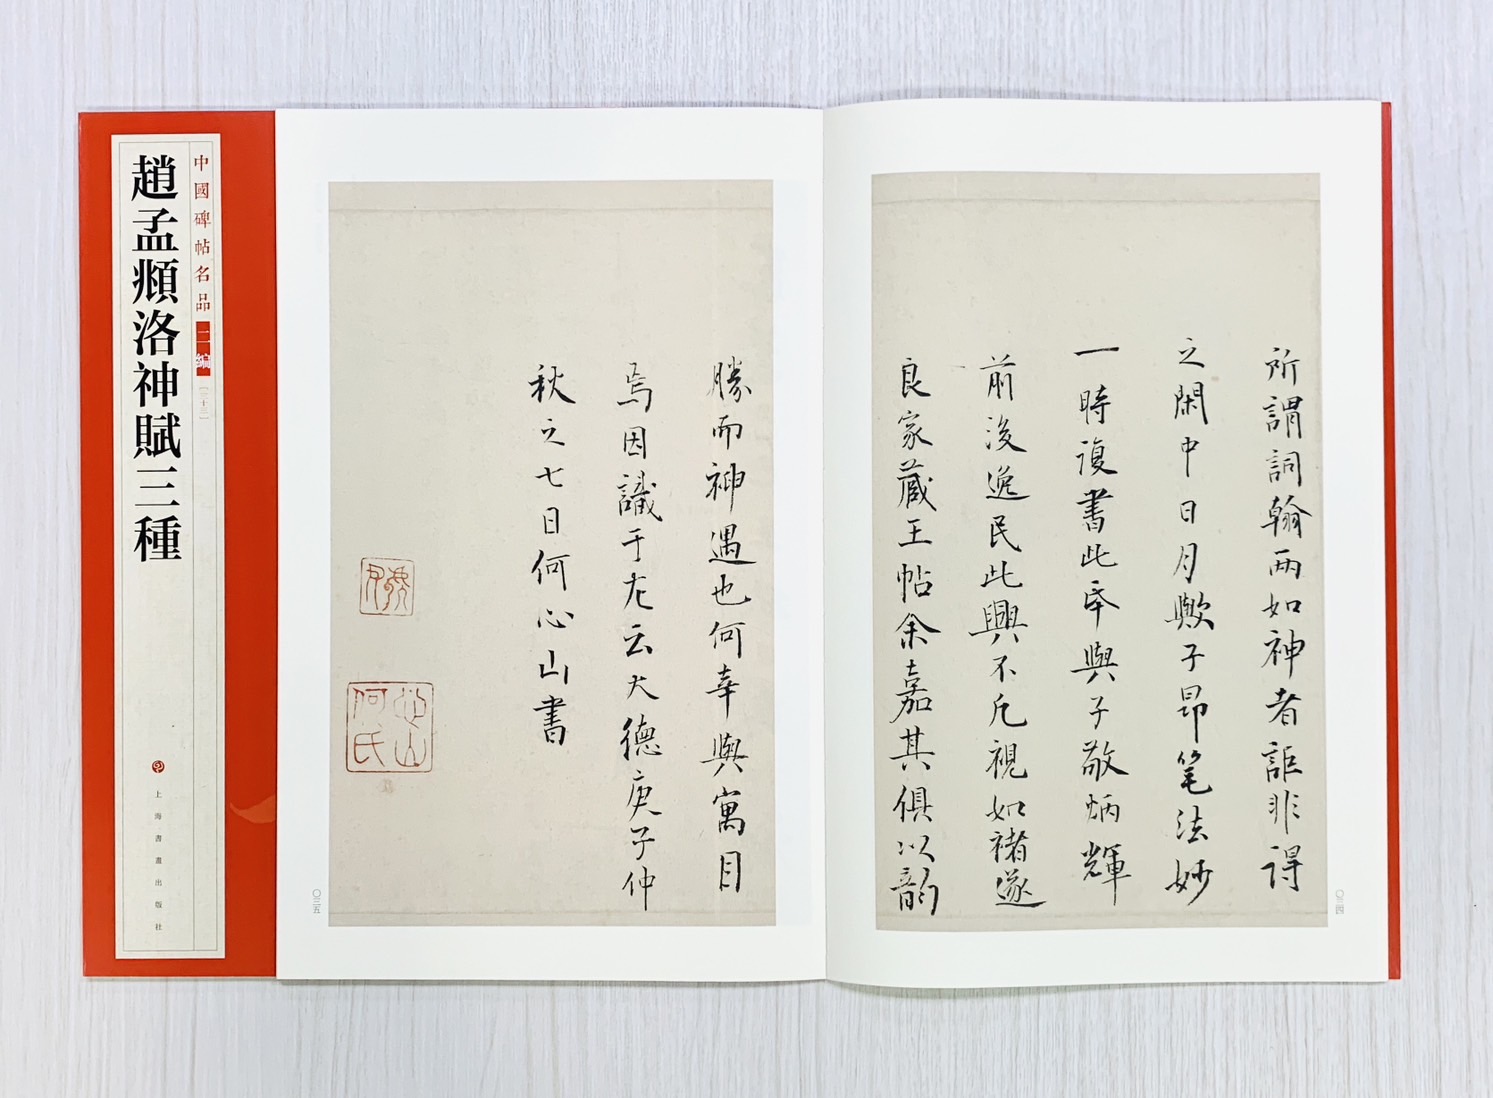 中國碑帖名品二編
趙孟頫洛神賦三種
上海書畫出版社
所謂詞翰兩如神者詎非得
之閑中日月歟子昂笔法妙
一時復書此本與子敬炳輝
前後逸民此興不凡視如褚遂
良家藏王帖余嘉其俱以韵
〇三四
勝而神遇也何幸與寓目
焉因識于左云大德庚子仲
秋之七日何心山書
心山何氏
〇三五